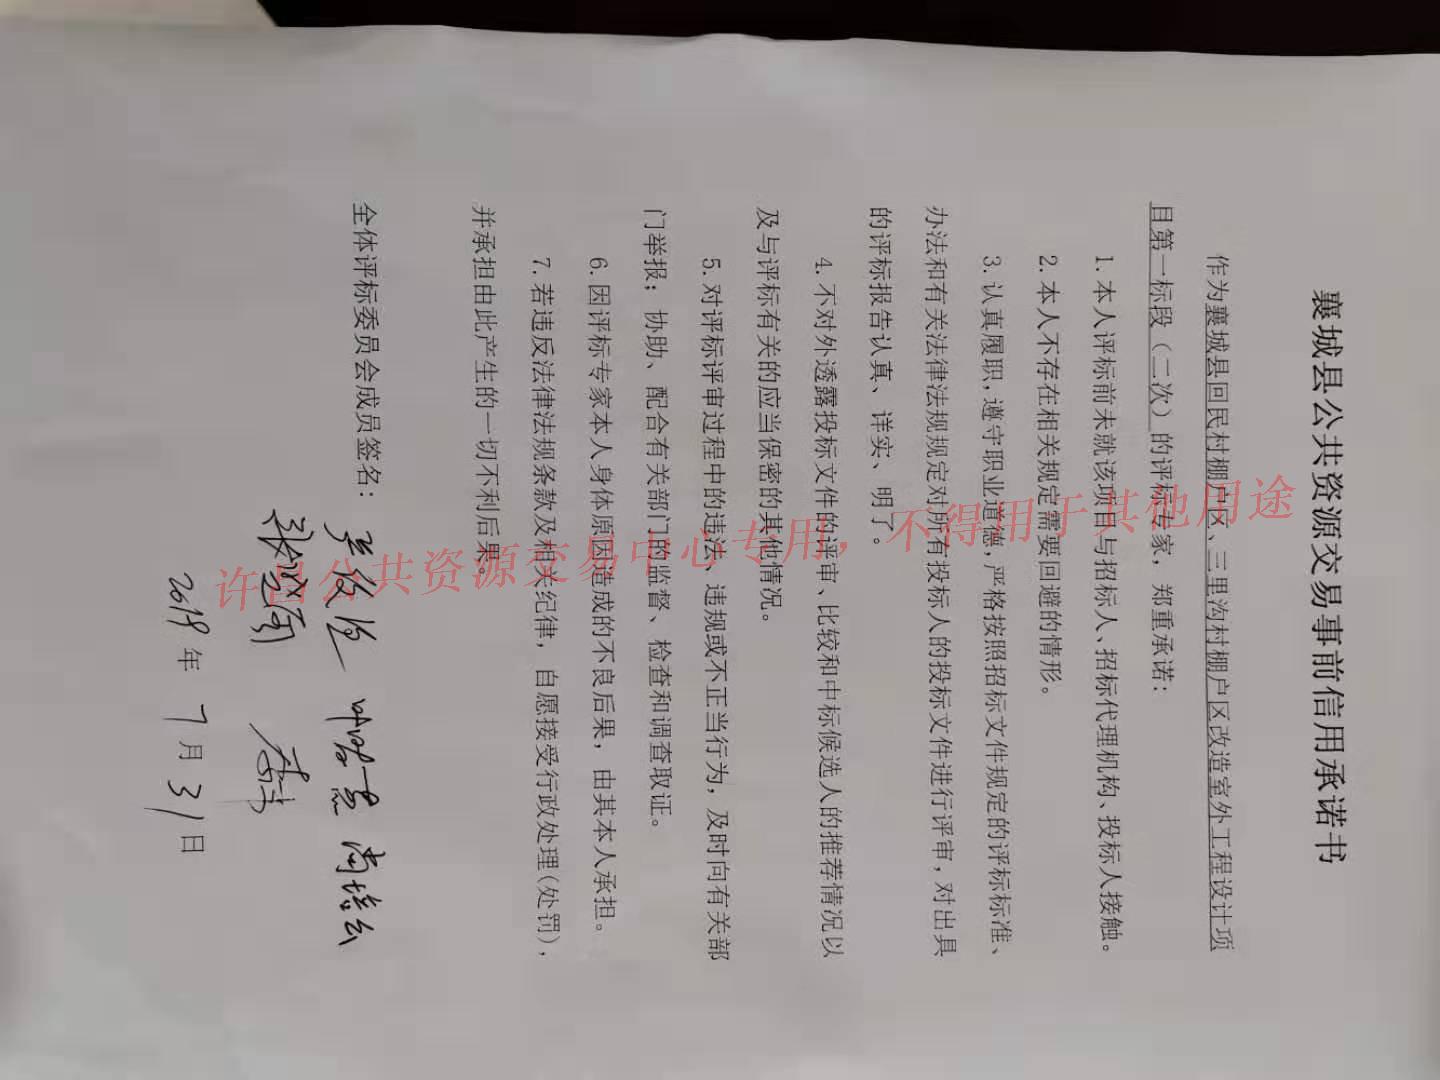 襄城县公共资源交易事前信用承诺书
作为襄城县回民村棚户区、三里沟村棚户区改造室外工程设计项
目第一标段（二次）的评标专家，郑重承诺：
1.本人评标前未就该项目与招标人、招标代理机构、投标人接触。
2.本人不存在相关规定需要回避的情形。
3.认真履职，遵守职业道德，严格按照招标文件规定的评标标准、
办法和有关法律法规规定对所有投标人的投标文件进行评审，对出具
的评标报告认真、详实、明了。
4.不对外透露投标文件的评审、比较和中标候选人的推荐情况以
及与评标有关的应当保密的其他情况。
5.对评标评审过程中的违法、违规或不正当行为，及时向有关部
门举报；协助、配合有关部门的监督、检查和调查取证。
6.因评标专家本人身体原因造成的不良后果，由其本人承担。
7.若违反法律法规条款及相关纪律，自愿接受行政处理（处罚），
并承担由此产生的一切不利后果。
全体评标委员会成员签名：
2019年7月31日
许昌公共资源交易中心专用，不得用于其他用途